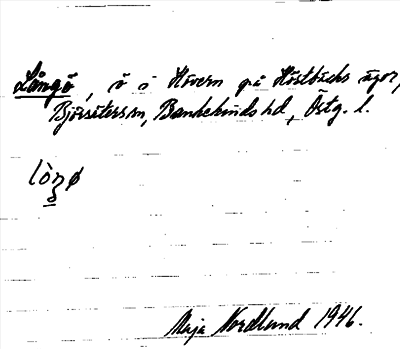 Långö, ö i Hövern på Höstbäcks ägor,
Björsäters sn, Bankekinds hd, Östg. l.
Maja Nordlund 1946.